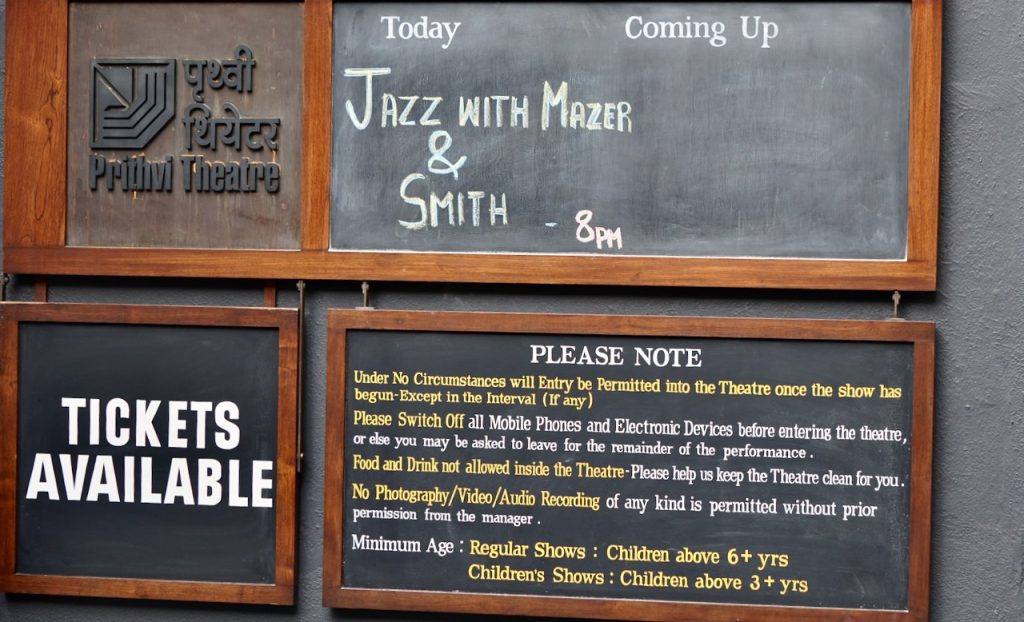 पृथ्वी
थियेटर
Prithvi Theatre
Today
Coming Up
JAZZ WITH MAZER
&
SMITH - 8PM
TICKETS
AVAILABLE
PLEASE NOTE
Under No Circumstances will Entry be Permitted into the Theatre once the show has
begun-Except in the Interval (If any)
Please Switch Off all Mobile Phones and Electronic Devices before entering the theatre,
or else you may be asked to leave for the remainder of the performance.
Food and Drink not allowed inside the Theatre-Please help us keep the Theatre clean for you.
No Photography/Video/Audio Recording of any kind is permitted without prior
permission from the manager.
Minimum Age : Regular Shows : Children above 6+ yrs
Children's Shows : Children above 3+ yrs